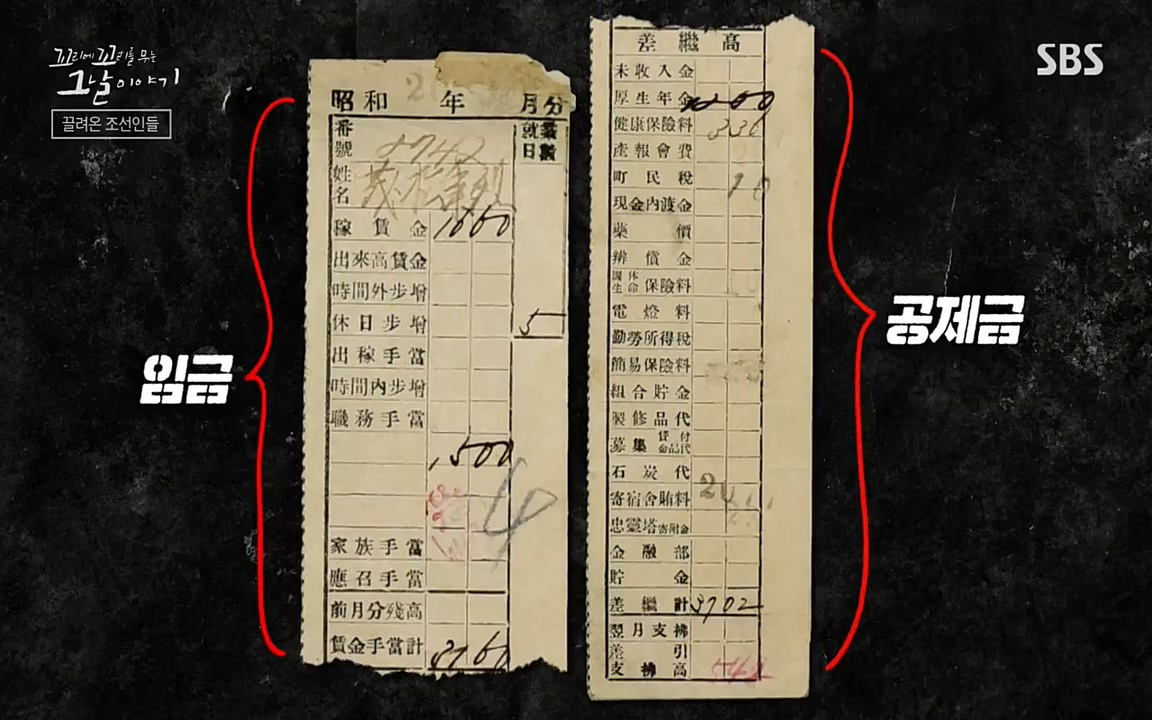 꼬리에 꼬리를 무는
그날 이야기
끌려온 조선인들
SBS
임금
昭和 年 月分
番號
姓名
就業日數
稼賃金 1660
出來高賃金
時間外步增
休日步增 5
出稼手當
時間內步增
職務手當
1500
家族手當
應召手當
前月分殘高
賃金手當計
差繼高
未收入金
厚生年金
健康保險料 336
產報會費
町民稅
現金內渡金
藥價
辨償金
團体生命保險料
電燈料
勤勞所得稅
簡易保險料
組合貯金
製修品代
募集貸付金品代
石炭代
寄宿舍賄料
忠靈塔寄附金
金融部
貯金
差繼計 3702
翌月支拂
差引支拂高
공제금